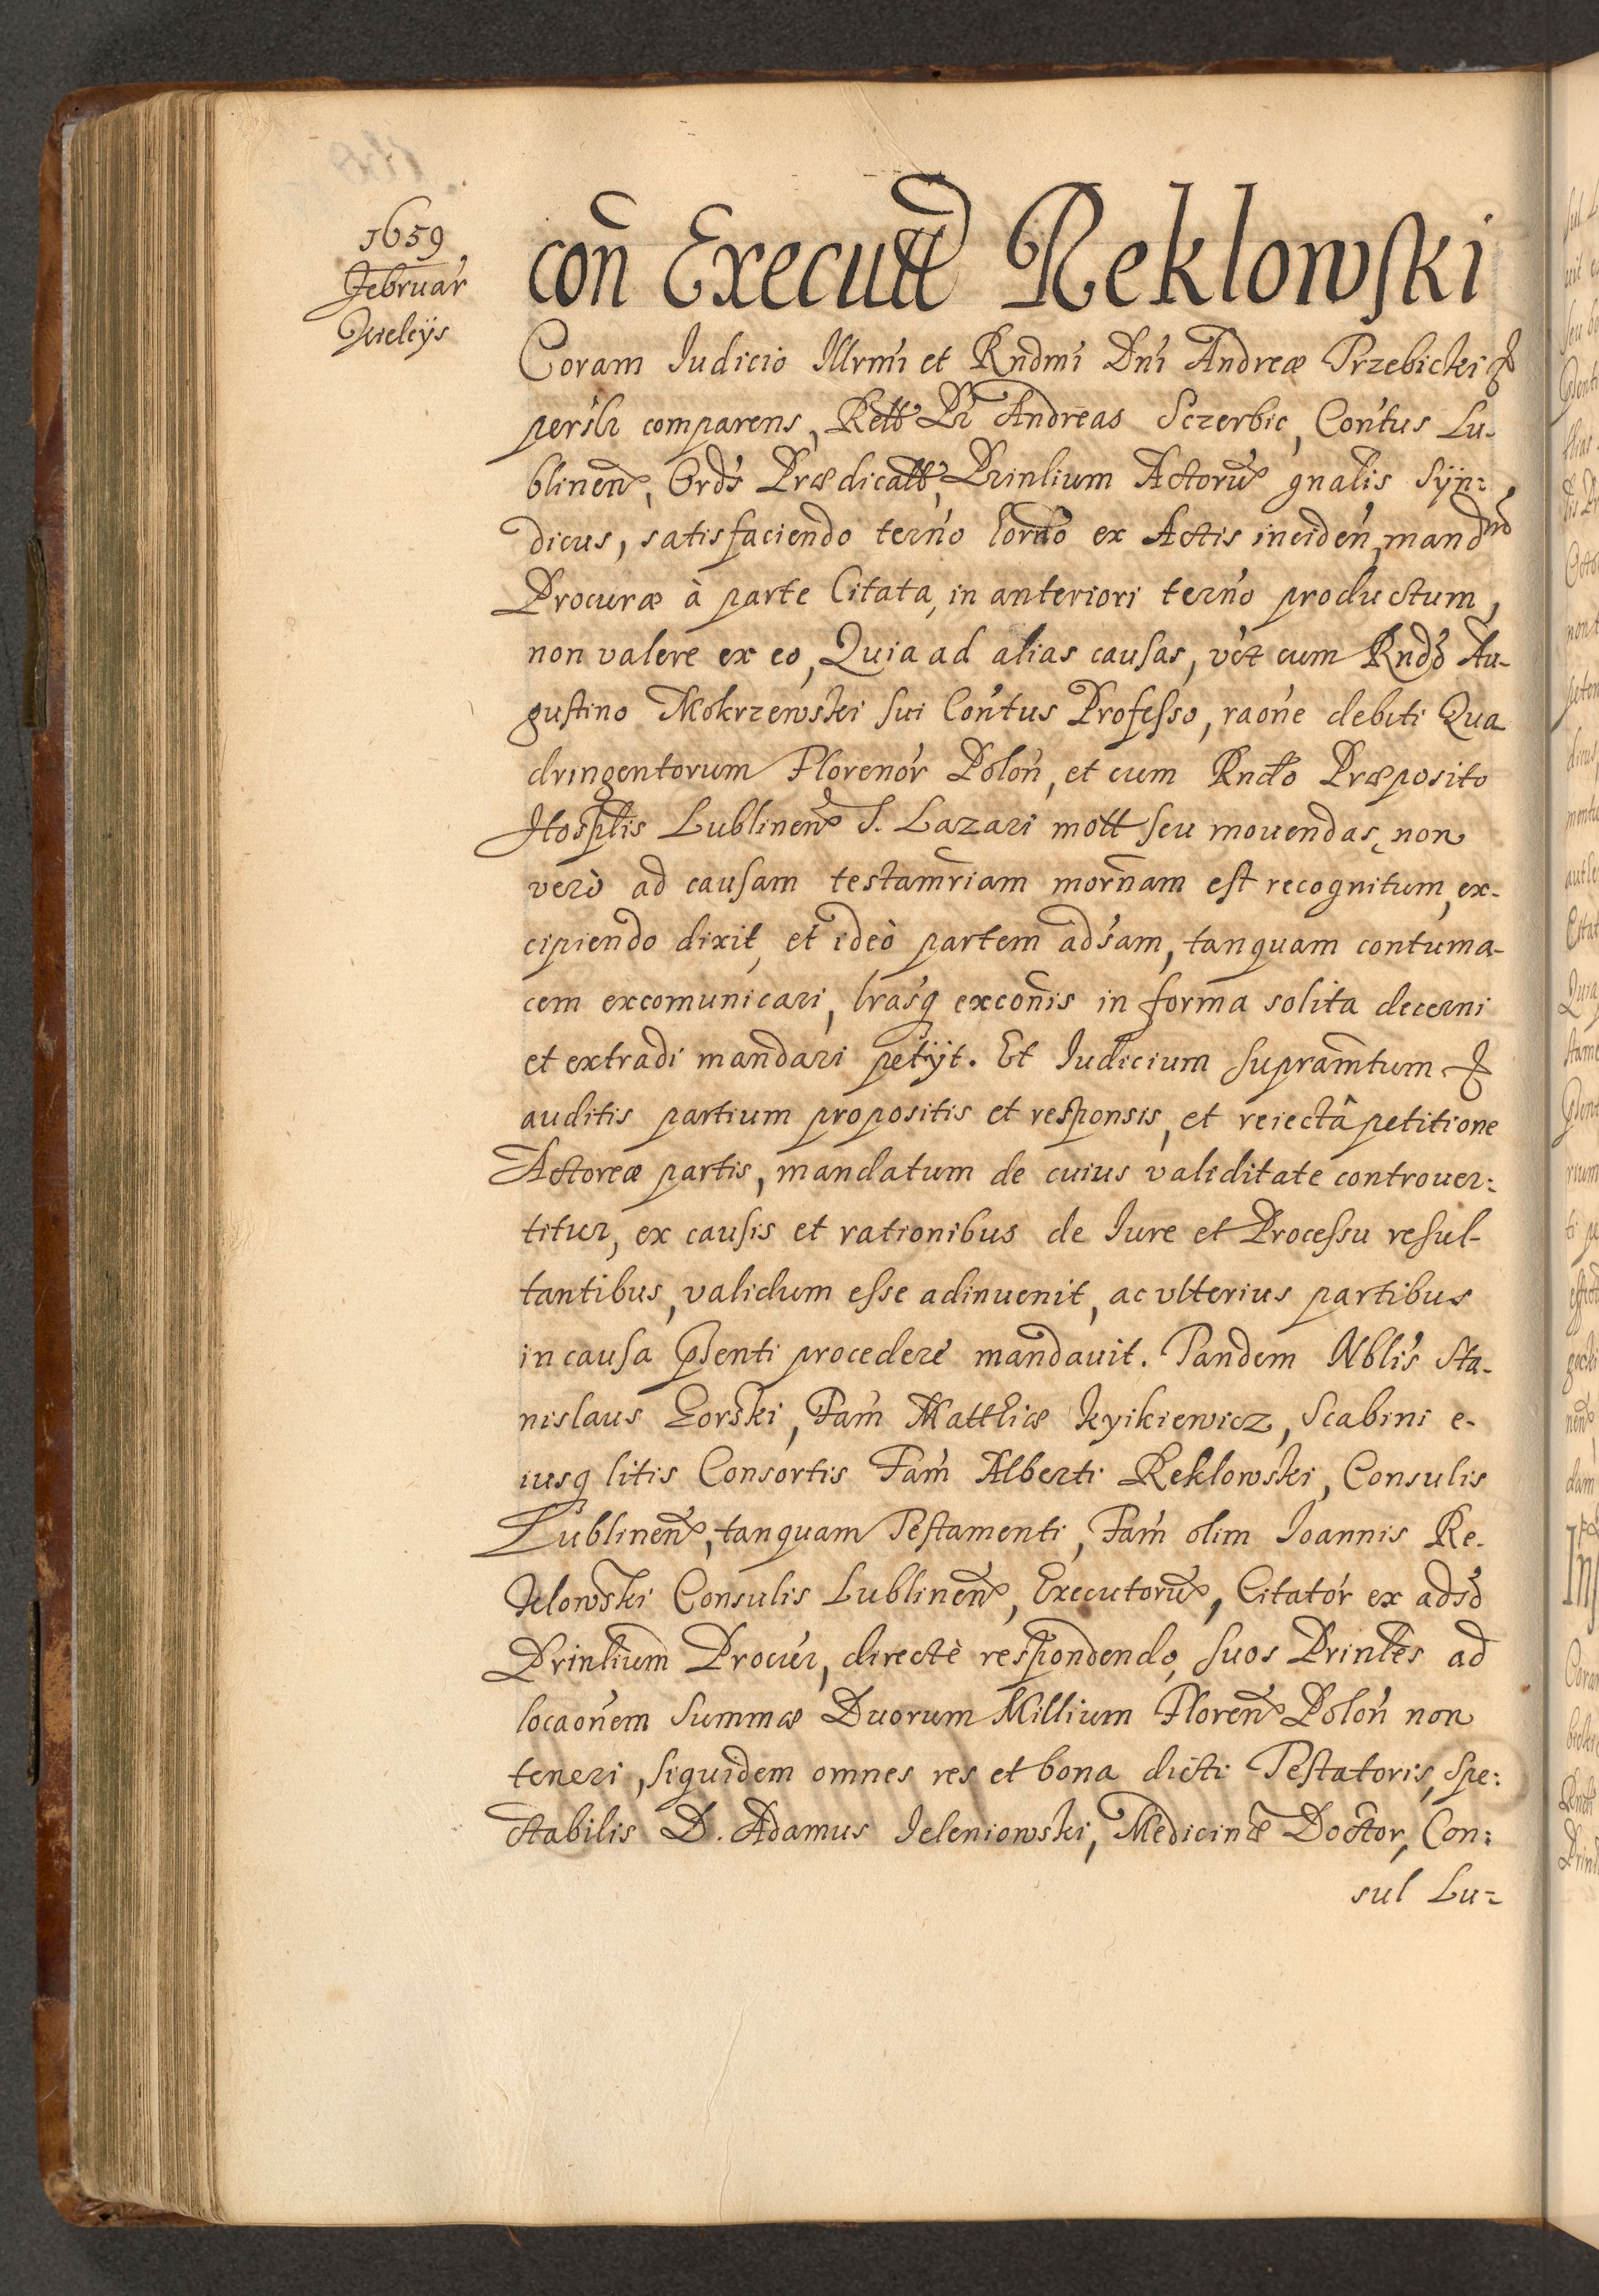 1659
Februar̃
Kielcijs
con̄ Executt Reklowski
Coram Iudicio Illrm̃i et Rndm̃i Dn̄i Andreæ Trzebicki &
persłr comparens, Rełł Pr̃ Andreas Sczerbic, Con̄tus Lu-
blinen̄, Ord̃s Prædicałł, Prinlium Actorū gnalis Sÿn=
dicus, satisfaciendo term̃o hodno ex Actis inciden̄, mandm̃
Procuræ à parte Citata, in anteriori term̃o productum,
non valere ex eo, Quia ad alias causas, vc̃z cum Rndõ Au-
gustino Mokrzewski sui Con̄tus Professo, raõne debiti Qua
dringentorum Florenor̃ Polon̄, et cum Rndõ Præposito
Hosplis Lublinen̄ S. Lazari mott seu mouendas, non
verò ad causam testam̃riam mor̃nam est recognitum, ex-
cipiendo dixit, et ideò partem adsam, tanquam contuma-
cem excomunicari, lras̃q excõnis in forma solita decerni
et extradi mandari petÿt. Et Iudicium supram̃tum &
auditis partium propositis et responsis, et reiectâ petitione
Actoreæ partis, mandatum de cuius validitate controuer=
titur, ex causis et rationibus de Iure et Processu resul-
tantibus, validum esse adinuenit, ac vlterius partibus
in causa p̃senti procedere mandauit. Tandem Nblis Sta-
nislaus Gorski, Fam̃ Matthiæ Kyikiewicz, Scabini e-
iusq litis Consortis Fam̃ Alberti Reklowski, Consulis
Lublinen̄, tanquam Testamenti, Fam̃ olim Ioannis Re-
klowski Consulis Lublinen̄, Executorū, Citator̃ ex adsõ
Prinlium Procur̃, directè respondendo, suos Prinłes ad
locaõnem Summæ Duorum Millium Floren̄ Polon̄ non
teneri, siquidem omnes res et bona dicti Testatoris, Spe=
ctabilis D. Adamus Ieleniowski, Medicinæ Doctor, Con=
sul Lu=